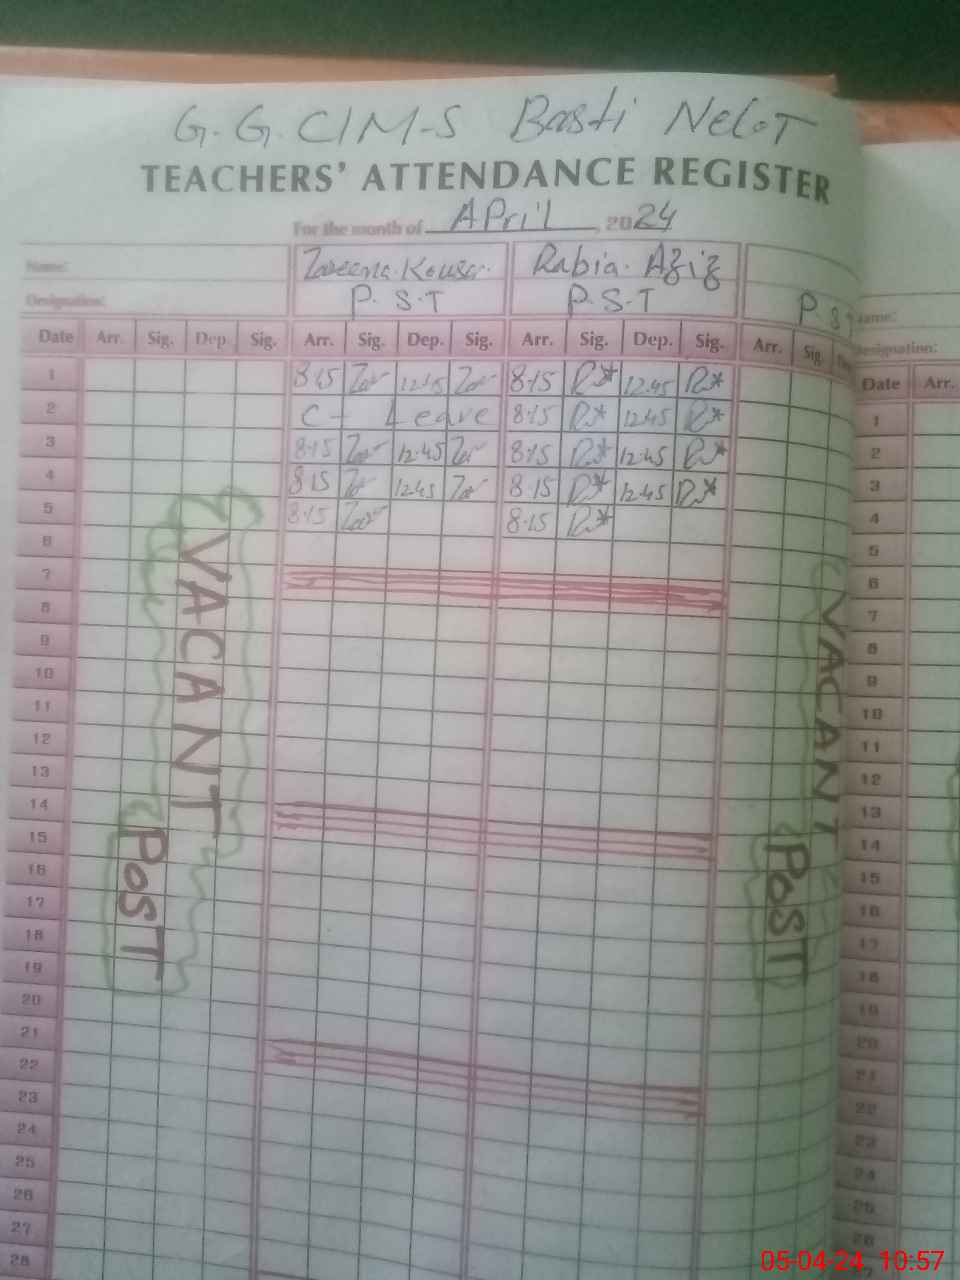 G.G.C/M-S Basti Nelot
TEACHERS' ATTENDANCE REGISTER
For the month of April, 2024
Name: Zareena Kousar. Rabia. Aziz
Designation: P.S.T P.S.T P.S.T
Date Arr. Sig. Dep. Sig. Arr. Sig. Dep. Sig. Arr. Sig. Dep. Sig. Arr. Sig.
1 8:15 12:45 8:15 12:45
2 C - Leave 8:15 12:45
3 8:15 12:45 8:15 12:45
4 8:15 12:45 8:15 12:45
5 8:15 8:15
6
7
8
9
10
11
12
13
14
15
16
17
18
19
20
21
22
23
24
25
26
27
28
VACANT POST
VACANT POST
Name:
Designation:
Date Arr.
1
2
3
4
5
6
7
8
9
10
11
12
13
14
15
16
17
18
19
20
21
22
23
24
25
26
05-04-24, 10:57